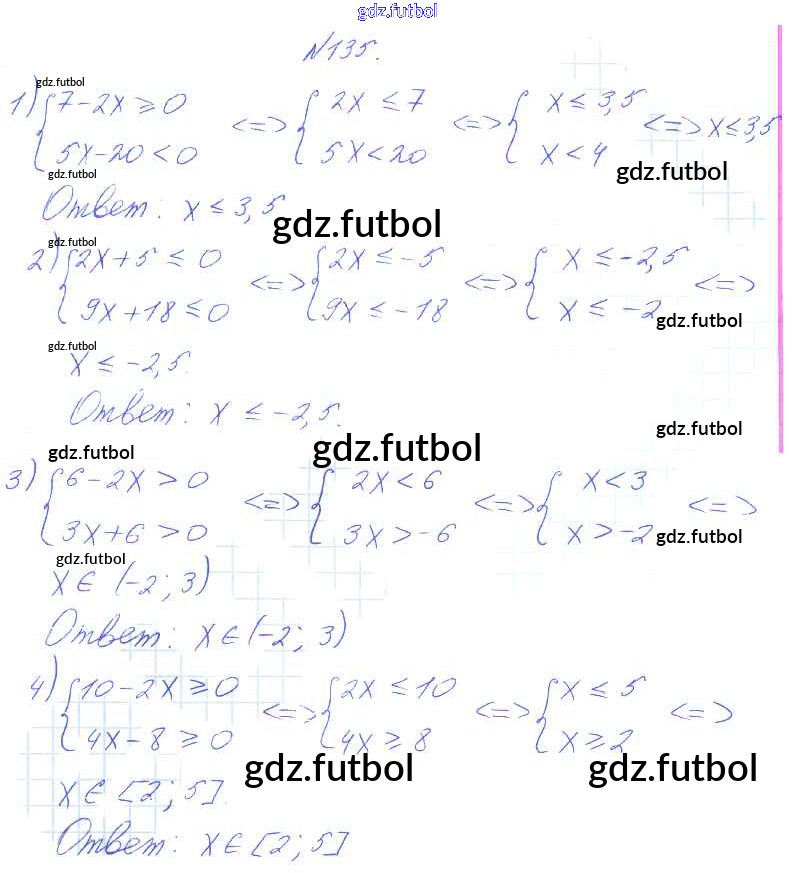 gdz.futbol
№135.
gdz.futbol
1) { 7-2x ≥ 0 <=> { 2x ≤ 7 <=> { x ≤ 3,5 <=> x ≤ 3,5
5x-20 < 0 5x < 20 x < 4
gdz.futbol gdz.futbol
Ответ: x ≤ 3,5
gdz.futbol
gdz.futbol
2) { 2x+5 ≤ 0 <=> { 2x ≤ -5 <=> { x ≤ -2,5 <=>
9x+18 ≤ 0 9x ≤ -18 x ≤ -2
gdz.futbol
gdz.futbol
x ≤ -2,5.
Ответ: x ≤ -2,5.
gdz.futbol
gdz.futbol gdz.futbol
3) { 6-2x > 0 <=> { 2x < 6 <=> { x < 3 <=>
3x+6 > 0 3x > -6 x > -2
gdz.futbol
gdz.futbol
x ∈ (-2; 3)
Ответ: x ∈ (-2; 3)
4) { 10-2x ≥ 0 <=> { 2x ≤ 10 <=> { x ≤ 5 <=>
4x-8 ≥ 0 4x ≥ 8 x ≥ 2
gdz.futbol gdz.futbol
x ∈ [2; 5].
Ответ: x ∈ [2; 5]